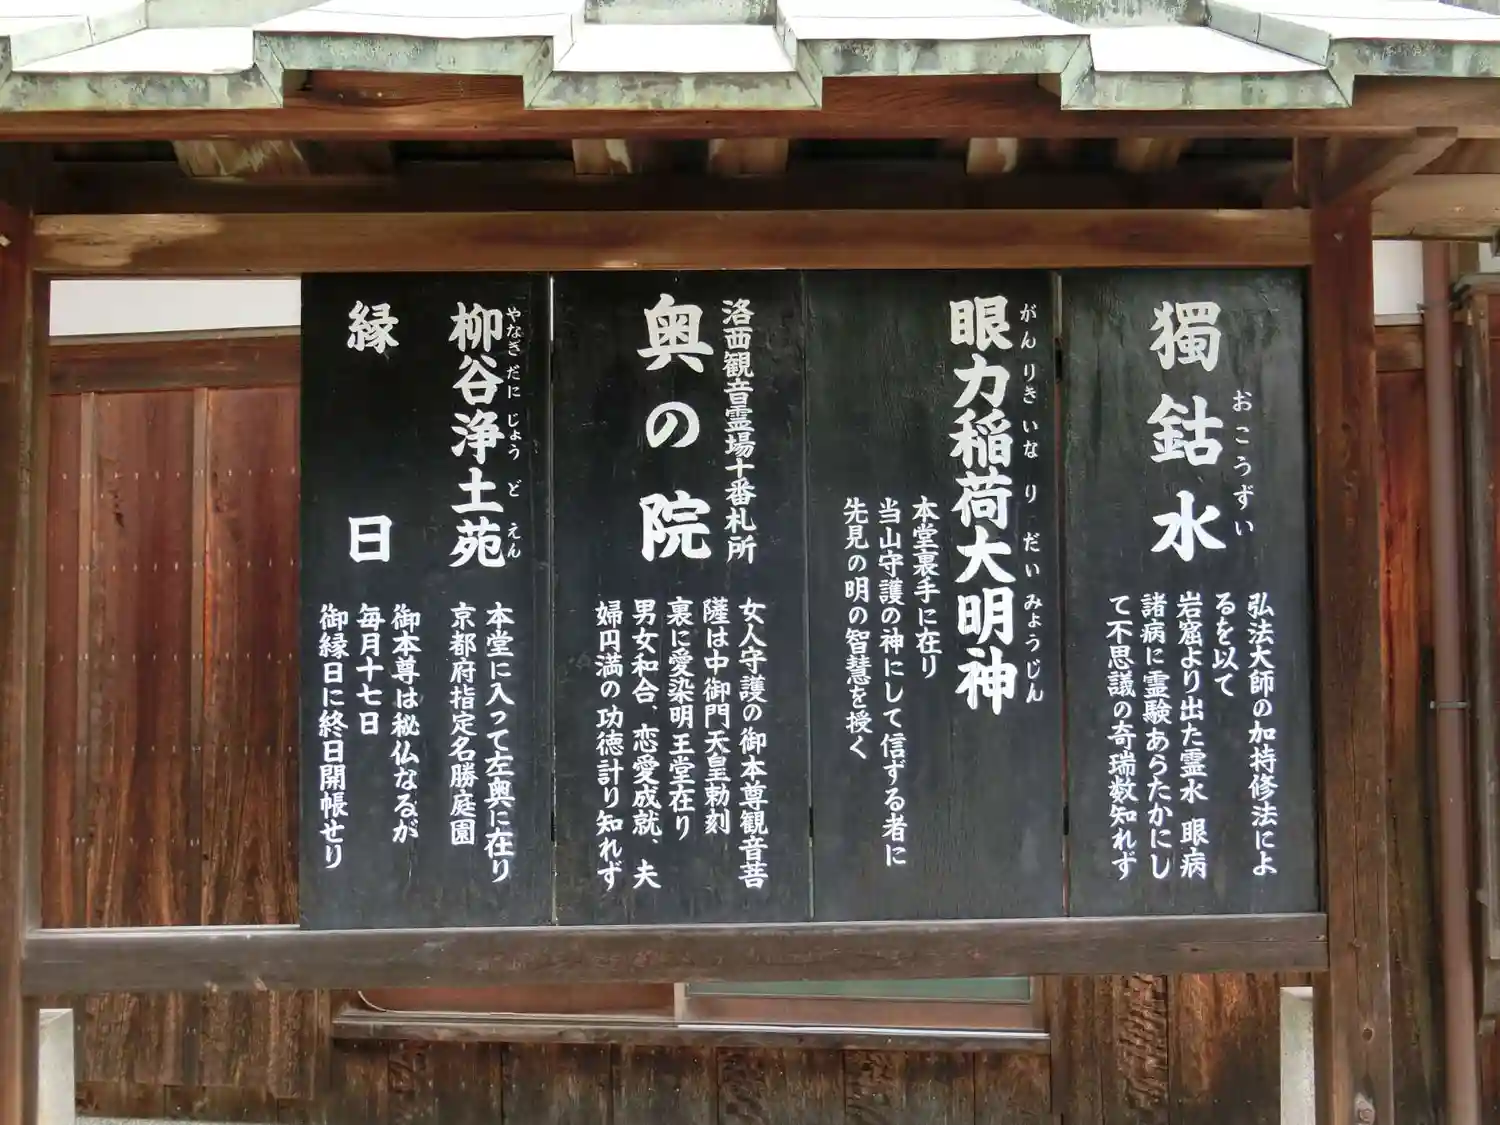 獨鈷水
おこうずい
弘法大師の加持修法によ
るを以て
岩窟より出た霊水 眼病
諸病に霊験あらたかにし
て不思議の奇瑞数知れず
がんりきいなりだいみょうじん
眼力稲荷大明神
本堂裏手に在り
当山守護の神にして信ずる者に
先見の明の智慧を授く
洛西観音霊場十番札所
奥の院
女人守護の御本尊観音菩
薩は中御門天皇勅刻
裏に愛染明王堂在り
男女和合、恋愛成就、夫
婦円満の功徳計り知れず
やなぎだにじょうどえん
柳谷浄土苑
本堂に入って左奥に在り
京都府指定名勝庭園
縁日
御本尊は秘仏なるが
毎月十七日
御縁日に終日開帳せり